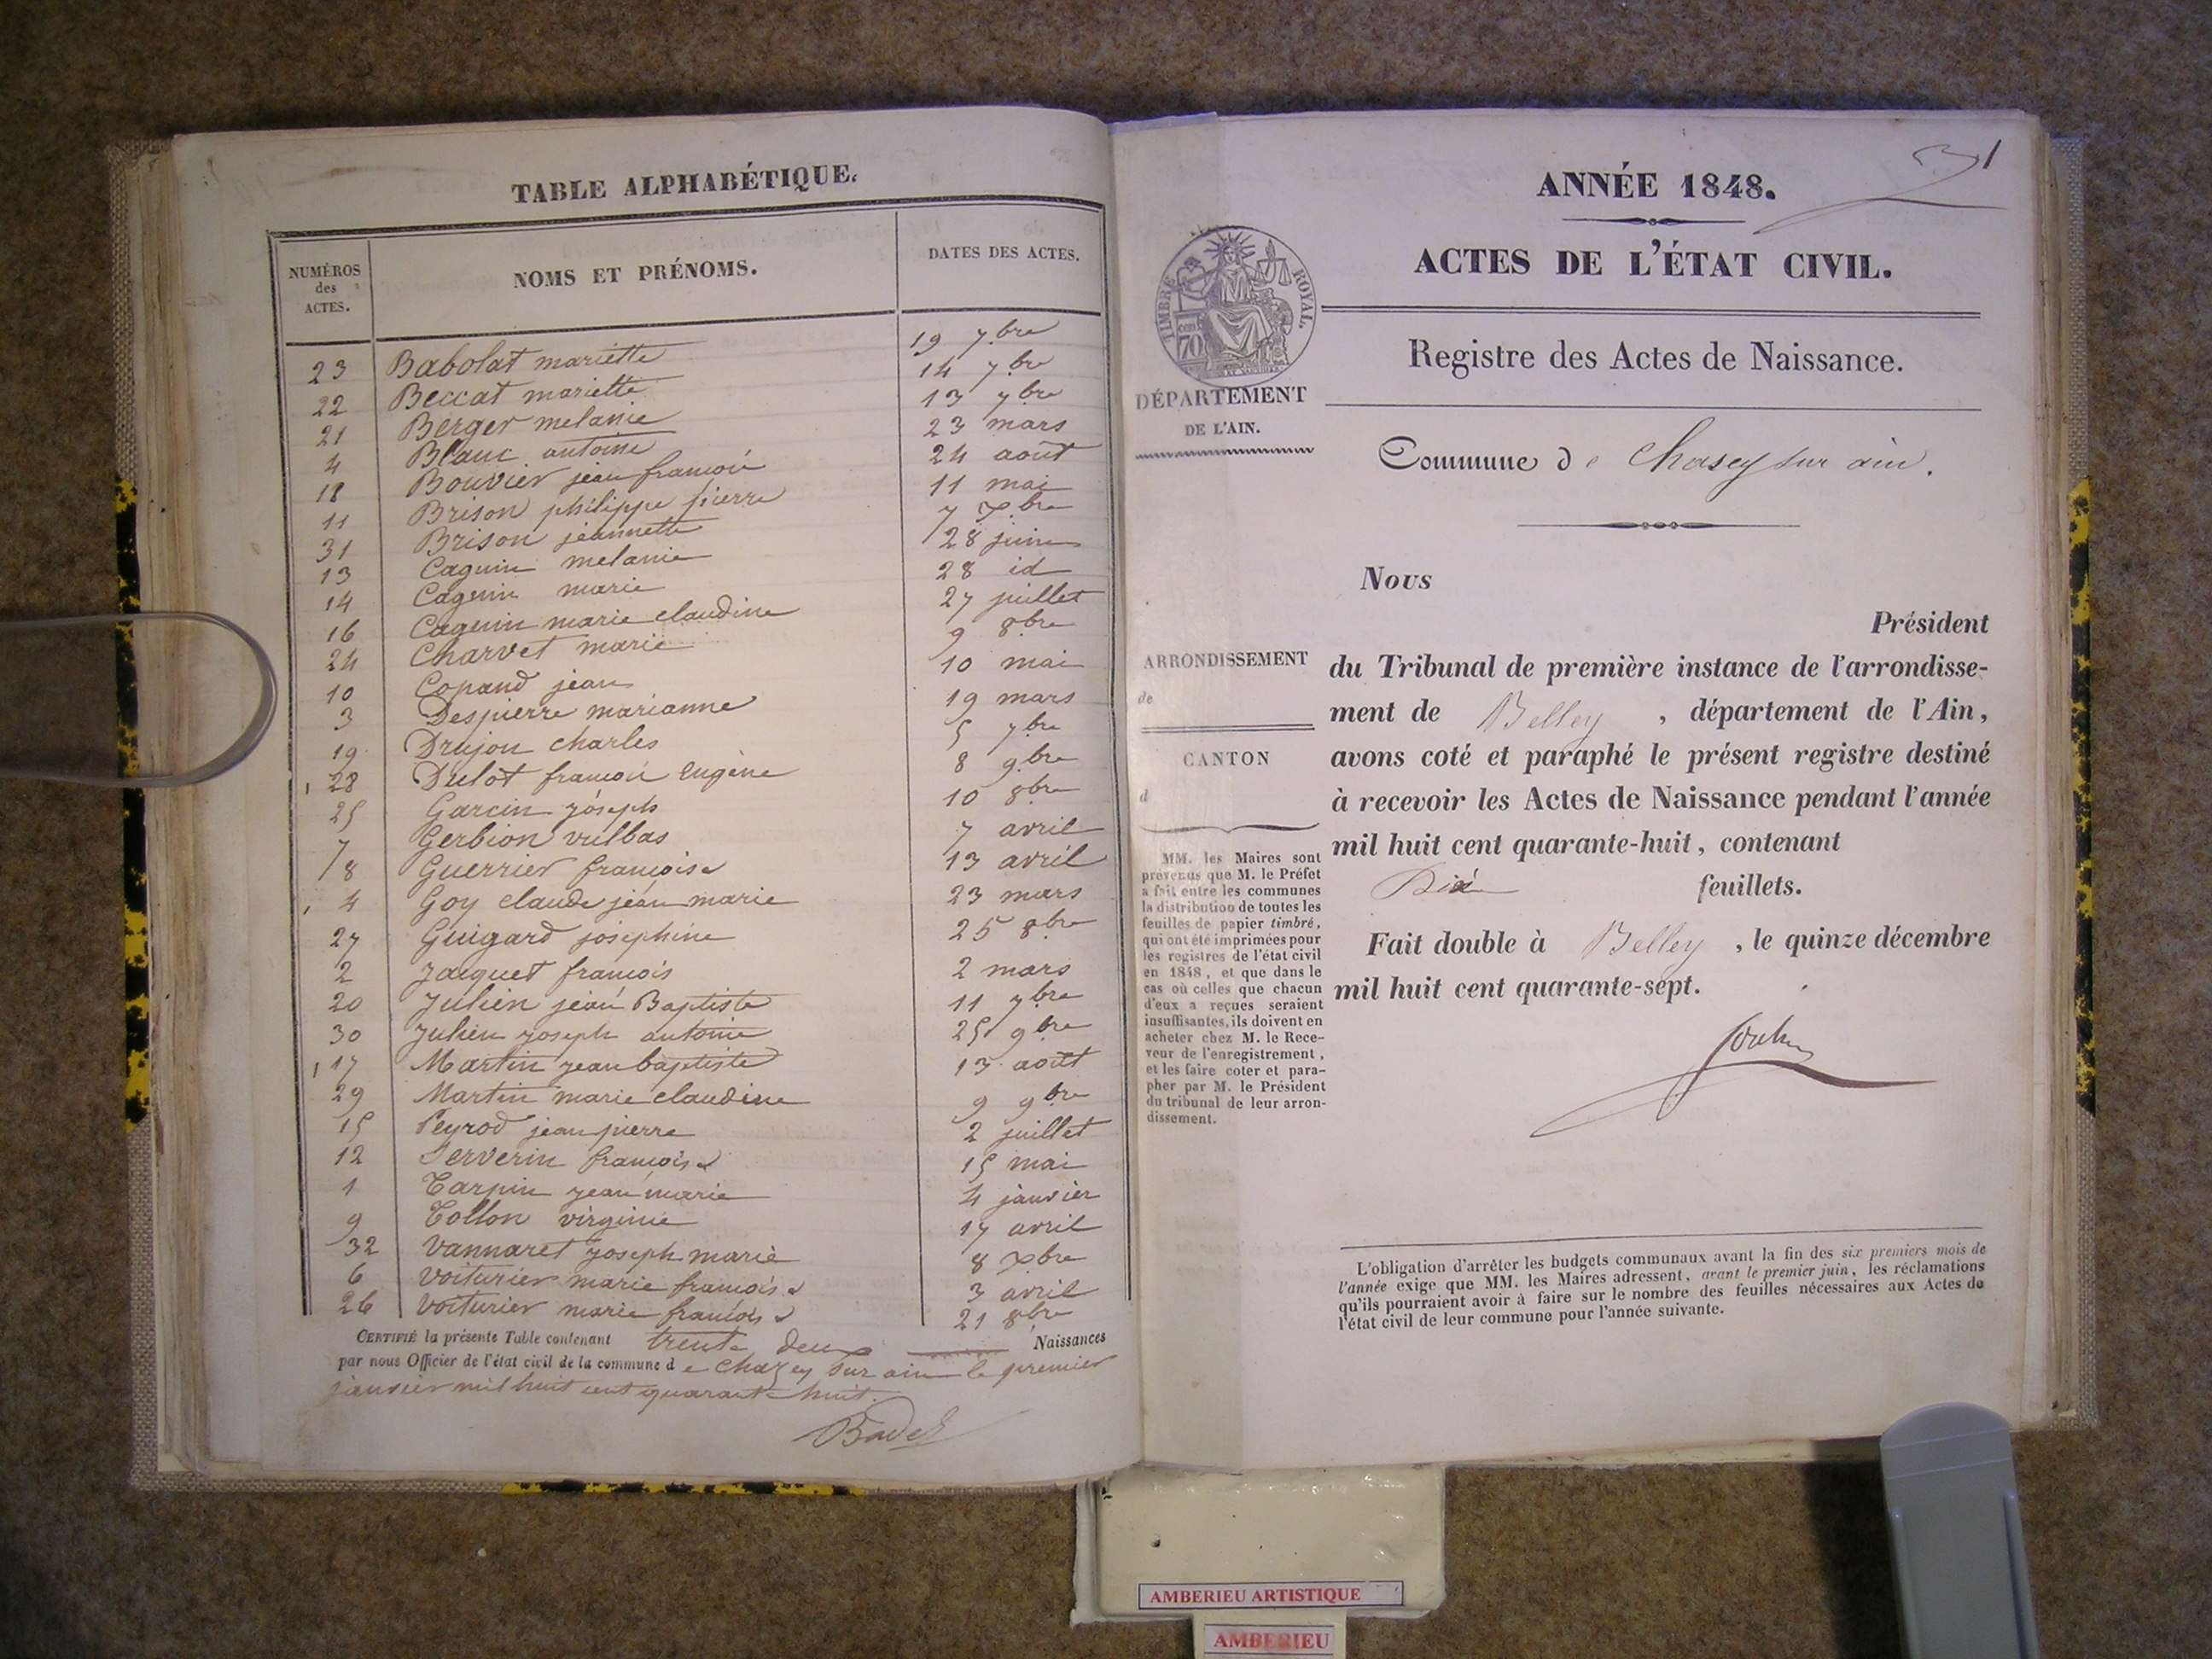 TABLE ALPHABÉTIQUE.
NUMÉROS des ACTES. NOMS ET PRÉNOMS. DATES DES ACTES.
23 Babolat mariette 19 7.bre
22 Beccat mariette 14 7.bre
21 Berger melanie 13 7bre
4 Blanc antoine 23 mars
18 Bouvier jean francois 24 août
11 Brison philippe pierre 11 mai
31 Brison jeannette 7 Xbre
13 Caguin melanie 28 juin
14 Caguin marie 28 id
16 Caguin marie claudine 27 juillet
24 Charvet marie 9 8bre
10 Copand jean 10 mai
3 Despierre marianne 19 mars
19 Drujon charles 5 7bre
28 Dulot francois Eugène 8 9bre
25 Garcin joseph 10 8bre
7 Gerbion vulbas 7 avril
8 Guerrier françoise 13 avril
4 Goy claude jean marie 23 mars
27 Guigard josephine 25 8bre
2 Jacquet francois 2 mars
20 Julien jean Baptiste 11 7bre
30 Julien joseph antoine 25 9bre
17 Martin jean baptiste 13 août
29 Martin marie claudine 9 9bre
15 Peyrod jean pierre 2 juillet
12 Serverin françoise 15 mai
1 Tarpin jean marie 4 janvier
9 Tollon virginie 17 avril
32 Vannaret joseph marie 8 Xbre
6 Voiturier marie francoise 3 avril
26 Voiturier marie francoise 21 8bre
CERTIFIÉ la présente Table contenant trente deux Naissances
par nous Officier de l'état civil de la commune d e Chazey sur ain le premier
janvier mil huit cent quarante huit.
Badet
1
ANNÉE 1848.
ACTES DE L'ÉTAT CIVIL.
TIMBRE ROYAL.
70
Registre des Actes de Naissance.
DÉPARTEMENT
DE L'AIN.
Commune d e Chasey sur ain.
Nous
Président
ARRONDISSEMENT
de
du Tribunal de première instance de l'arrondisse-
ment de Belley , département de l'Ain,
CANTON
d
avons coté et paraphé le présent registre destiné
à recevoir les Actes de Naissance pendant l'année
mil huit cent quarante-huit, contenant
Dix feuillets.
Fait double à Belley , le quinze décembre
mil huit cent quarante-sept.
MM. les Maires sont
prévenus que M. le Préfet
a fait entre les communes
la distribution de toutes les
feuilles de papier timbré,
qui ont été imprimées pour
les registres de l'état civil
en 1848, et que dans le
cas où celles que chacun
d'eux a reçues seraient
insuffisantes, ils doivent en
acheter chez M. le Rece-
veur de l'enregistrement,
et les faire coter et para-
pher par M. le Président
du tribunal de leur arron-
dissement.
L'obligation d'arrêter les budgets communaux avant la fin des six premiers mois de
l'année exige que MM. les Maires adressent, avant le premier juin, les réclamations
qu'ils pourraient avoir à faire sur le nombre des feuilles nécessaires aux Actes de
l'état civil de leur commune pour l'année suivante.
AMBERIEU ARTISTIQUE
AMBERIEU